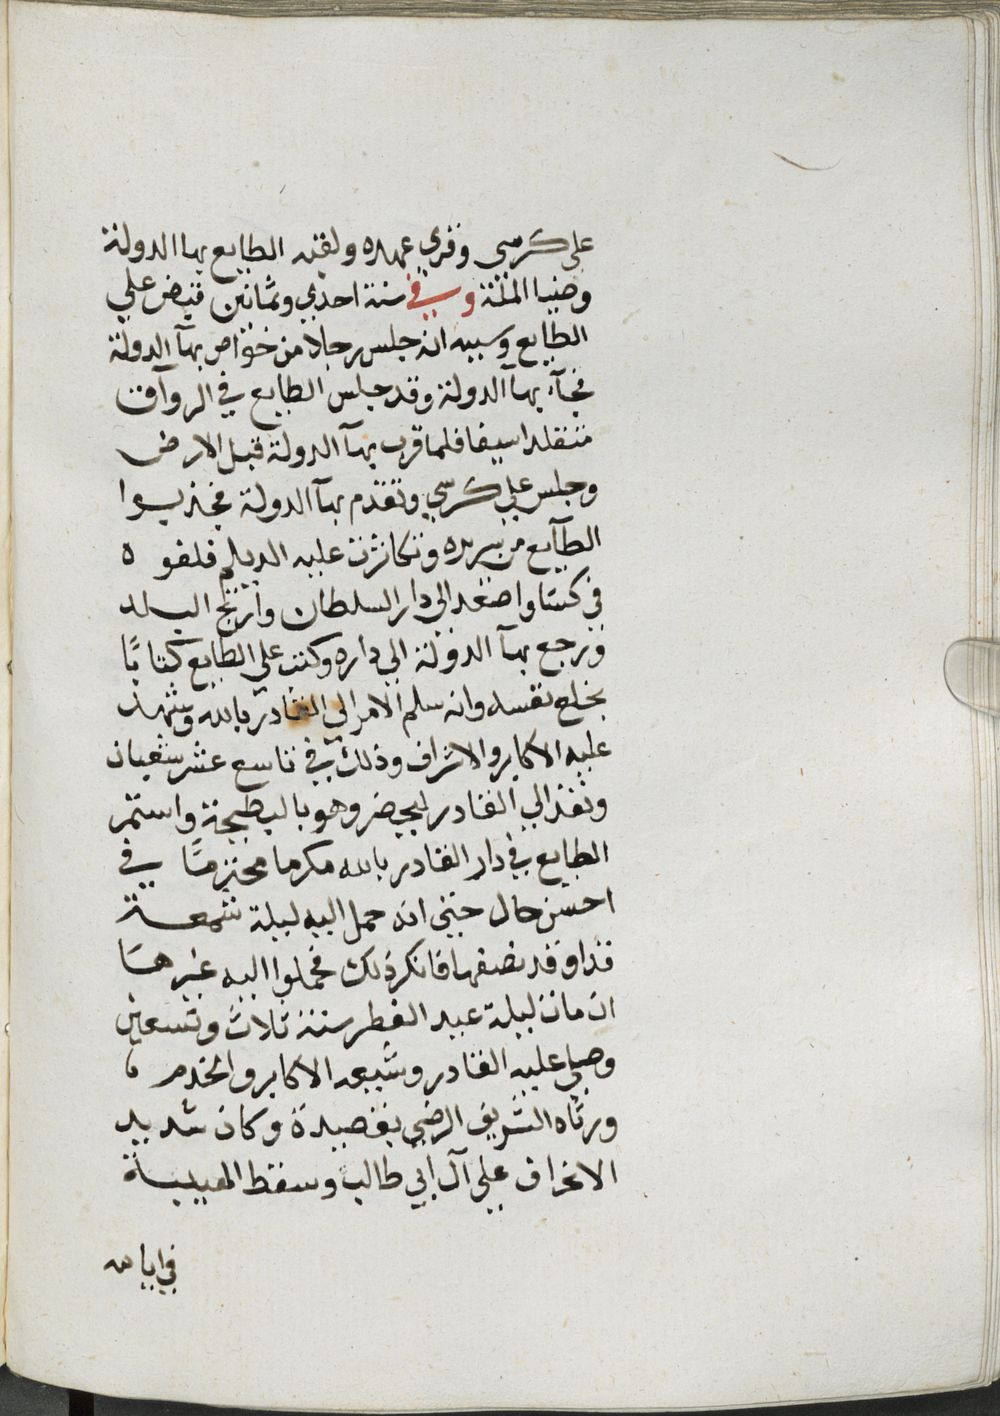 على كرسي وقري عهده ولقبه الطايع بهاالدولة
وضيا الملة وفي سنة احدي وثمانين قبض علي
الطايع وسببه انه جلس رجلا من خواص بهآ الدولة
فجآء بهآ الدولة وقد جلس الطايع في الرواق
متقلدا سيفا فلما قرب بهآ الدولة قبل الارض
وجلس علي كرسي وتقدم بهآ الدولة فجذبوا
الطآيع من سريره وتكاثرت عليه الديلم فلفوه
في كسا واصعد الي دار السلطان وارتج البلد
ورجع بهآ الدولة الي داره وكتب علي الطايع كتابا
بخلع نفسه وانه سلم الامر الي القادر بالله وشهد
عليه الاكابر والاشراف وذلك في تاسع عشر شعبان
ونفذ الي القادر ليحضر وهو بالبطيحة واستمر
الطايع في دار القادر بالله مكرما محترما في
احسن حال حتي انه حمل اليه ليلة شمعة
قد اوقد نصفها فانكر ذلك فحملوا اليه غيرها
ان مات ليلة عيد الفطر سنة ثلاث وتسعين
وصلي عليه القادر وشيعه الاكابر والخدم
ورثاه الشريف الرضي بقصيدة وكان شديد
الانحراف علي آل ابي طالب وسقط الهيبة
في ايامه